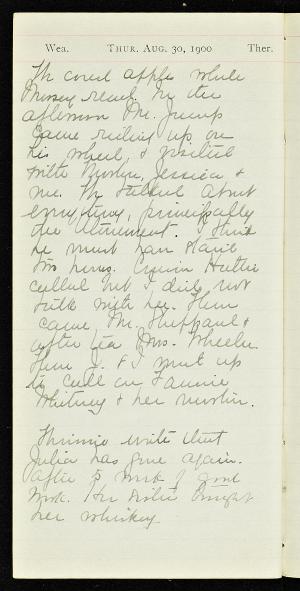 Wea. THUR. AUG. 30, 1900 Ther.
We cored apples while
read. In the
afternoon Mr. Jump
came riding up on
his wheel, & visited
with Evelyn, Jessica &
me. We talked about
everything, principally
the Atonement. I think
he must have staid
two hours. Cousin Hattie
called but I did not
talk with her. Then
came Mr. Sheppard &
after tea Mrs. Wheeler.
Then J. & I went up
to call on Fannie
Whitney & her cousin.
write that
Julia has gone again.
After 5 wks of good
work. Her sister brought
her whiskey